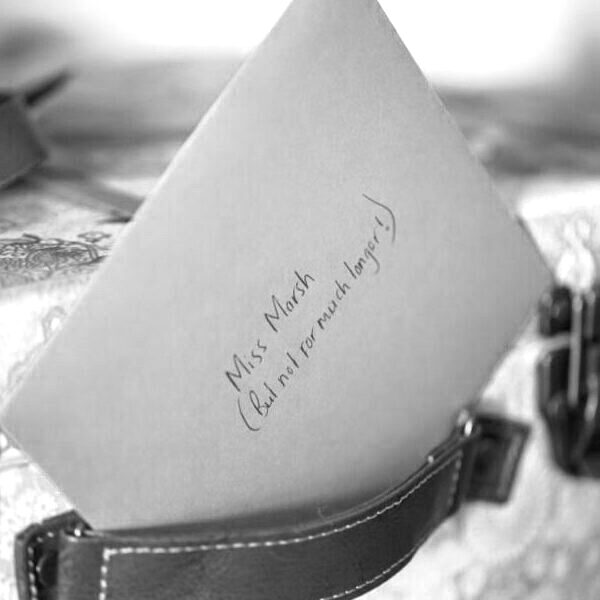 Miss Marsh
(But not for much longer!)